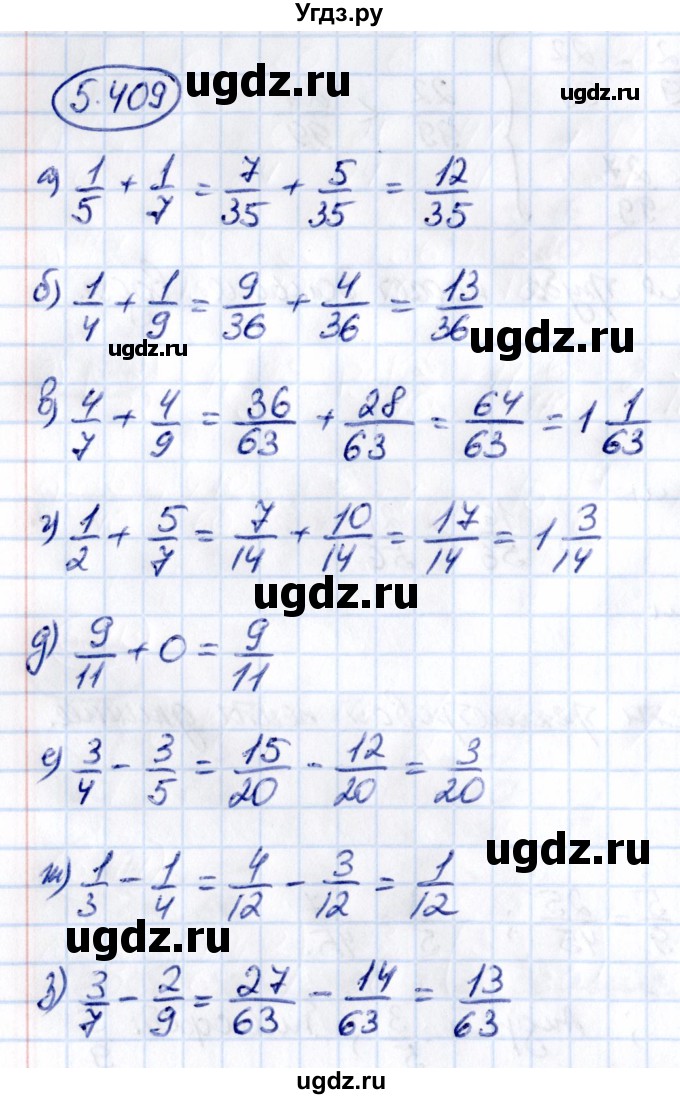 Угдз.ру
5.409
ugdz.ru
ugdz.ru
а) 1/5 + 1/7 = 7/35 + 5/35 = 12/35
б) 1/4 + 1/9 = 9/36 + 4/36 = 13/36
ugdz.ru
ugdz.ru
в) 4/7 + 4/9 = 36/63 + 28/63 = 64/63 = 1 1/63
г) 1/2 + 5/7 = 7/14 + 10/14 = 17/14 = 1 3/14
ugdz.ru
д) 9/11 + 0 = 9/11
е) 3/4 - 3/5 = 15/20 - 12/20 = 3/20
ugdz.ru
ж) 1/3 - 1/4 = 4/12 - 3/12 = 1/12
ugdz.ru
з) 3/7 - 2/9 = 27/63 - 14/63 = 13/63
ugdz.ru